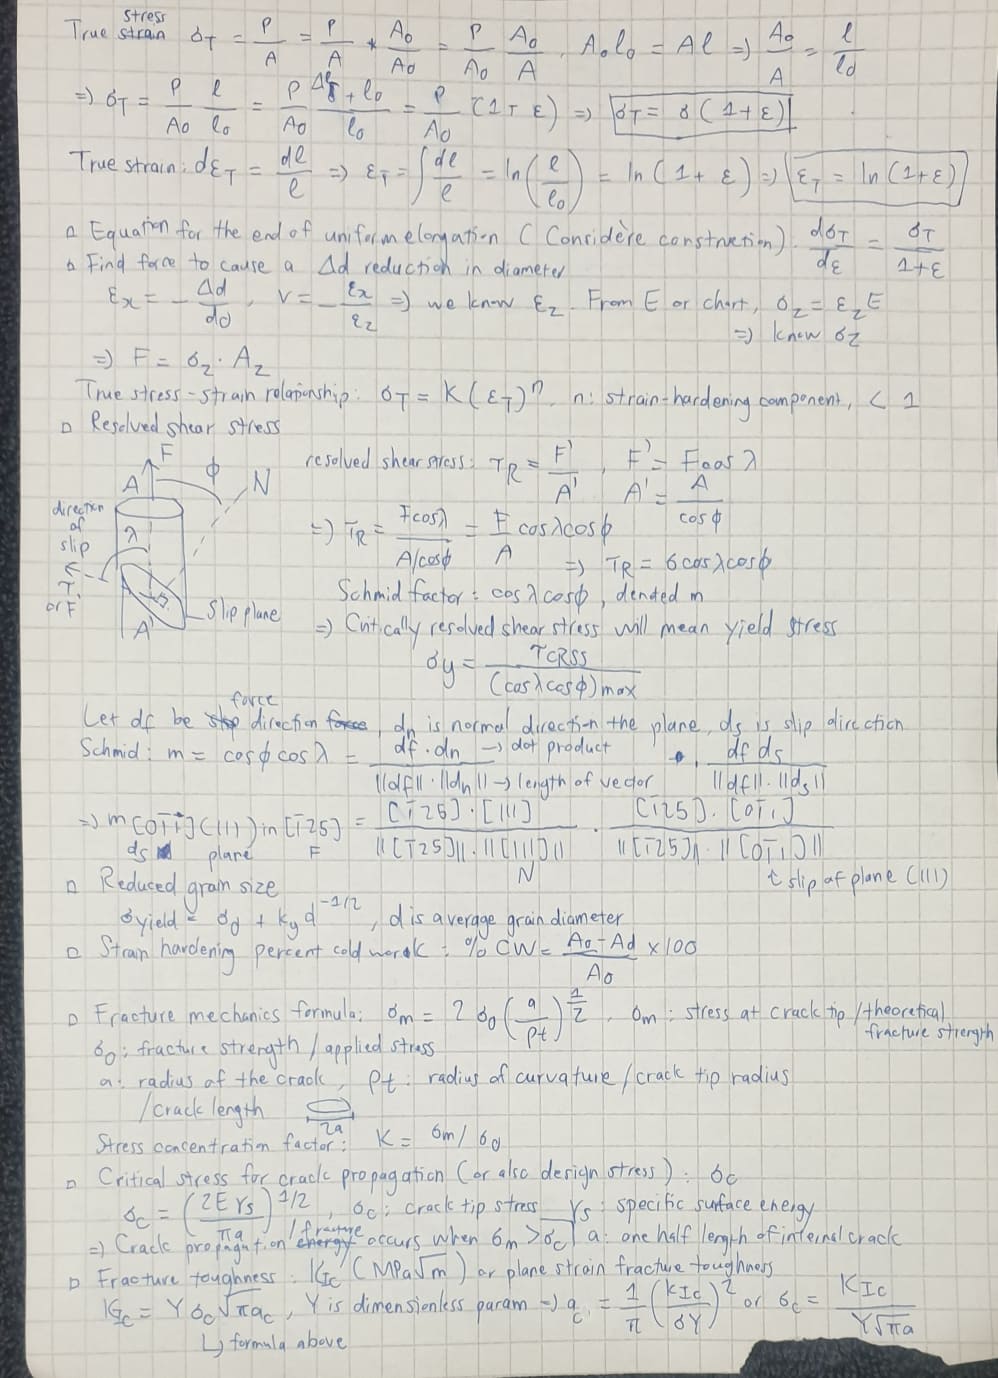 stress
True strain σT = P/A = P/A * A0/A0 = P/A0 A0/A . A0l0 = Al => A0/A = l/l0
=> σT = P/A0 l/l0 = P/A0 Δl + l0/l0 = P/A0 (1 + ε) => σT = σ(1+ε)
True strain: dεT = dl/l => εT = ∫dl/l = ln(l/l0) = ln(1+ε) => εT = ln(1+ε)
□ Equation for the end of uniform elongation (Considère construction). dσT/dε = σT/1+ε
□ Find force to cause a Δd reduction in diameter
εx = -Δd/d0, v = -εx/εz => we know εz. From E or chart, σz = εzE
=> know σz
=> F = σz · Az
True stress-strain relationship: σT = K(εT)^n, n: strain-hardening component, < 1
□ Resolved shear stress
F
A
φ
N
direction
of
slip
λ
T
or F'
A'
Slip plane
resolved shear stress: TR = F'/A', F' = Fcosλ
A' = A/cosφ
=> TR = Fcosλ/A/cosφ = F/A cosλcosφ
=> TR = σcosλcosφ
Schmid factor: cosλcosφ, denoted m
=> Critically resolved shear stress will mean yield stress
σy = TCRSS/(cosλcosφ)max
force
Let df be direction, dn is normal direction the plane, ds is slip direction
Schmid: m = cosφcosλ = df·dn -> dot product/||df||·||dn|| -> length of vector · df ds/||df||·||ds||
=> m[01̄1](111) in [1̄25] = [1̄25]·[111]/||[1̄25]||·||[111]|| · [1̄25]·[01̄1]/||[1̄25]||·||[01̄1]||
ds plane F N slip of plane (111)
□ Reduced grain size
σyield = σ0 + kyd^-1/2, d is average grain diameter
□ Strain hardening percent cold work: %CW = A0-Ad/A0 x100
□ Fracture mechanics formula: σm = 2σ0(a/ρt)^1/2, σm: stress at crack tip/theoretical
fracture strength
σ0: fracture strength/applied stress
a: radius of the crack, ρt: radius of curvature/crack tip radius
/crack length
2a
Stress concentration factor: K = σm/σ0
□ Critical stress for crack propagation (or also design stress): σc
σc = (2Eγs/πa)^1/2, σc: crack tip stress γs: specific surface energy
/fracture energy
=> Crack propagation occurs when σm > σc a: one half length of internal crack
□ Fracture toughness: KIc (MPa√m) or plane strain fracture toughness
KIc = Yσc√πac, Y is dimensionless param => ac = 1/π (KIc/σY)^2 or σc = KIc/Y√πa
↳ formula above